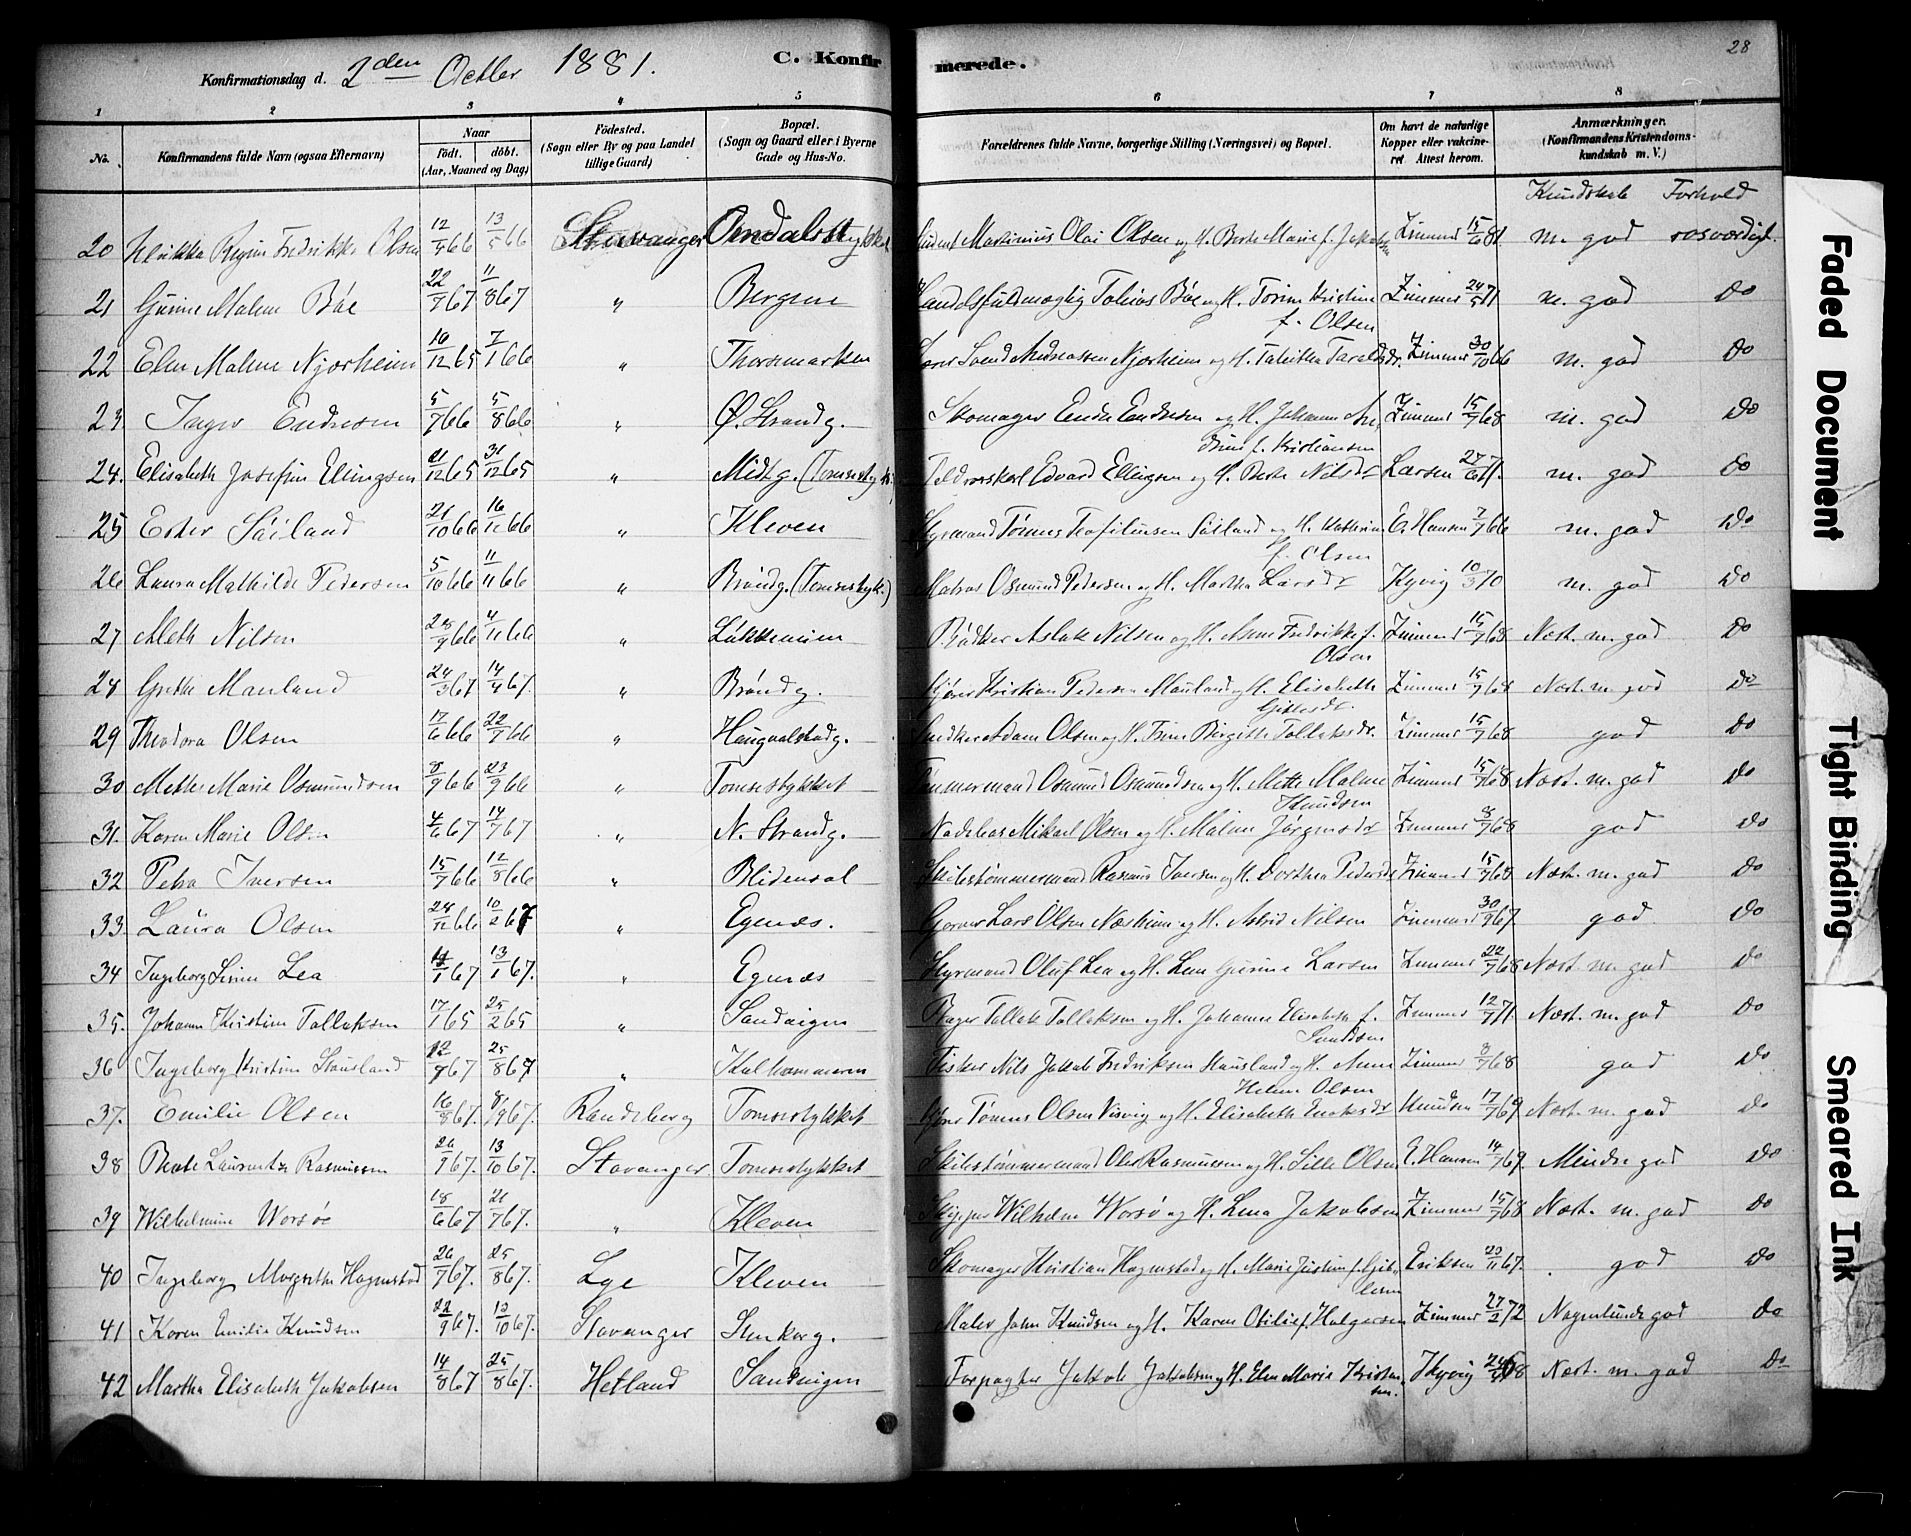 28
Konfirmationsdag d. 2den Octber 1881. C. Konfirmerede.
1 2 3 4 5 6 7 8
No. Konfirmandens fulde Navn (ogsaa Efternavn) Naar Födt. döbt. (Aar, Maaned og Dag) Födested. (Sogn eller By og paa Landet tillige Gaard) Bopæl. (Sogn og Gaard eller i Byerne Gade og Hus-No. Forældrenes fulde Navne, borgerlige Stilling (Næringsvei) og Bopæl. Om havt de naturlige Kopper eller vakcineret Attest herom. Anmærkninger. (Konfirmandens Kristendomskundskab m. V.)
Kundskab Forhold
20 Regine Fredrikke Olsen 12/4 66 13/5 66 Stavanger Martinius Olai Olsen og H. Berte Marie f. Zimmer 15/6 81 m. god rosværdigt.
21 Gurine Malene Böe 22/7 67 11/8 67 " Bergsm Handelsfuldmægtig Tobias Böe og H. Torine Kristine f. Olsen Zimmer 24/5 71 m. god do
22 Elen Malene Njorheim 16/12 65 7/1 66 " Thorsmarken Svend Andreassen Njorheim og H. Tabitha Taraldsdr. Zimmer 30/10 66 m. god do
23 Inger Endresen 5/7 66 5/8 66 " Ø. Strandg. Skomager Endre Endresen og H. Johanne f. Kristiansen Zimmer 15/7 68 m. god do
24. Elisabeth Josefine Ellingsen 21/12 65 31/12 65 " Midtg. Edvard Ellingsen og H. Berte Nilsdr Larsen 27/6 71. m. god do
25 Ester Söiland 21/10 66 16/11 66 " Kleven Styrmand Tønnes Teofilussen Söiland og H. Kathrine f. Olsen E. Hansen 7/7 66 m. god do
26 Laura Mathilde Pedersen 5/10 66 11/11 66 " Bröndg. Matros Osmund Pedersen og H. Martha Larsdr Kyvig 10/3 70 m. god do
27 Meth Nilsen 28/9 66 4/11 66 " Lökkeveien Bödker Aslak Nilsen og H. Anne Fredrikke f. Olsen Zimmer 15/7 68 Næst. m. god do
28 Grethe Mauland 24/3 67 14/4 67. " Bröndg. Kristian Pedersen Mauland og H. Elisabeth Zimmer 15/7 68 Næst. m. god do
29 Theodora Olsen 17/6 66 22/7 66 " Haugvaldstadg. Snedker Adam Olsen og H. Trine Birgitte Tollaksdr. Zimmer 15/7 68 god do
30 Mette Marie Osmundsen 8/9 66 23/9 66 " Tomsestykket Tömmermand Osmund Osmundsen og H. Mette Malene Knudsen Zimmer 15/7 68 Næst. m. god do
31. Karen Marie Olsen 4/6 67 14/7 67 " N. Strandg. Mikael Olsen og H. Malene Jörgensdr Zimmer 8/7 68 god do
32 Petra Iversen 15/7 66 12/8 66 " Blidensol Skibstömmermand Rasmus Iversen og H. Dorthea Pedersdr Zimmer 15/7 68 Næst. m. god do
33. Laura Olsen 24/12 66 10/2 67 " Egenæs. Lars Olsen Næsheim og H. Astrid Nilsen Zimmer 30/9 67. god do
34 Ingeborg Serine Lea 67 13/1 67. " Egenæs Styrmand Oluf Lea og H. Lene Gurine Larsen Zimmer 22/7 68 Næst. m. god do
35. Johanne Kristine Tollaksen 17/1 65 25/2 65 " Sandvigen Bager Tollak Tollaksen og H. Johanne Elisabeth f. Zimmer 12/7 71 Næst. m. god do
36 Ingeborg Kristine Stausland 12/7 67 25/8 67 " Kalhammeren Fisker Nils Jakob Fredriksen Stausland og H. Anne Helene Olsen Zimmer 8/7 68 god do
37. Emilie Olsen 16/8 67. 8/9 67. Randeberg Tomsestykket Tönnes Olsen Visvig og H. Elisabeth Enoksdr Knudsen 17/7 69 Næst. m. god do
38 Beate Laurentze Rasmussen 20/9 67. 13/10 67. Stavanger Tomsestykket Skibstömmermand Ole Rasmussen og H. Sille Olsen E. Hansen 14/7 69. Mindre god do
39 Wilhelmine Worsöe 18/6 67 21/7 67. " Kleven Skipper Wilhelm Worsö og H. Lena Jakobsen Zimmer 15/7 68 Næst. m. god do
40 Ingeborg Margrethe Hognestad 20/7 67. 25/8 67. Lye Kleven Skomager Kristian Hognestad og H. Marie Justine f. Eriksen 20/11 67. god do
41 Karen Emilie Knudsen 22/9 67. 13/10 67. Stavanger Stenkarg. Maler John Knudsen og H. Karen Otilie f. Holgersen Zimmer 27/2 72 Nogenlunde god do
42 Martha Elisabeth Jakobsen 14/8 67 25/8 67. Hetland Sandvigen Forpagter Jakob Jakobsen og H. Elen Marie Kristensen. Kyvig 68 Næst. m. god do
Faded Document
Tight Binding
Smeared Ink